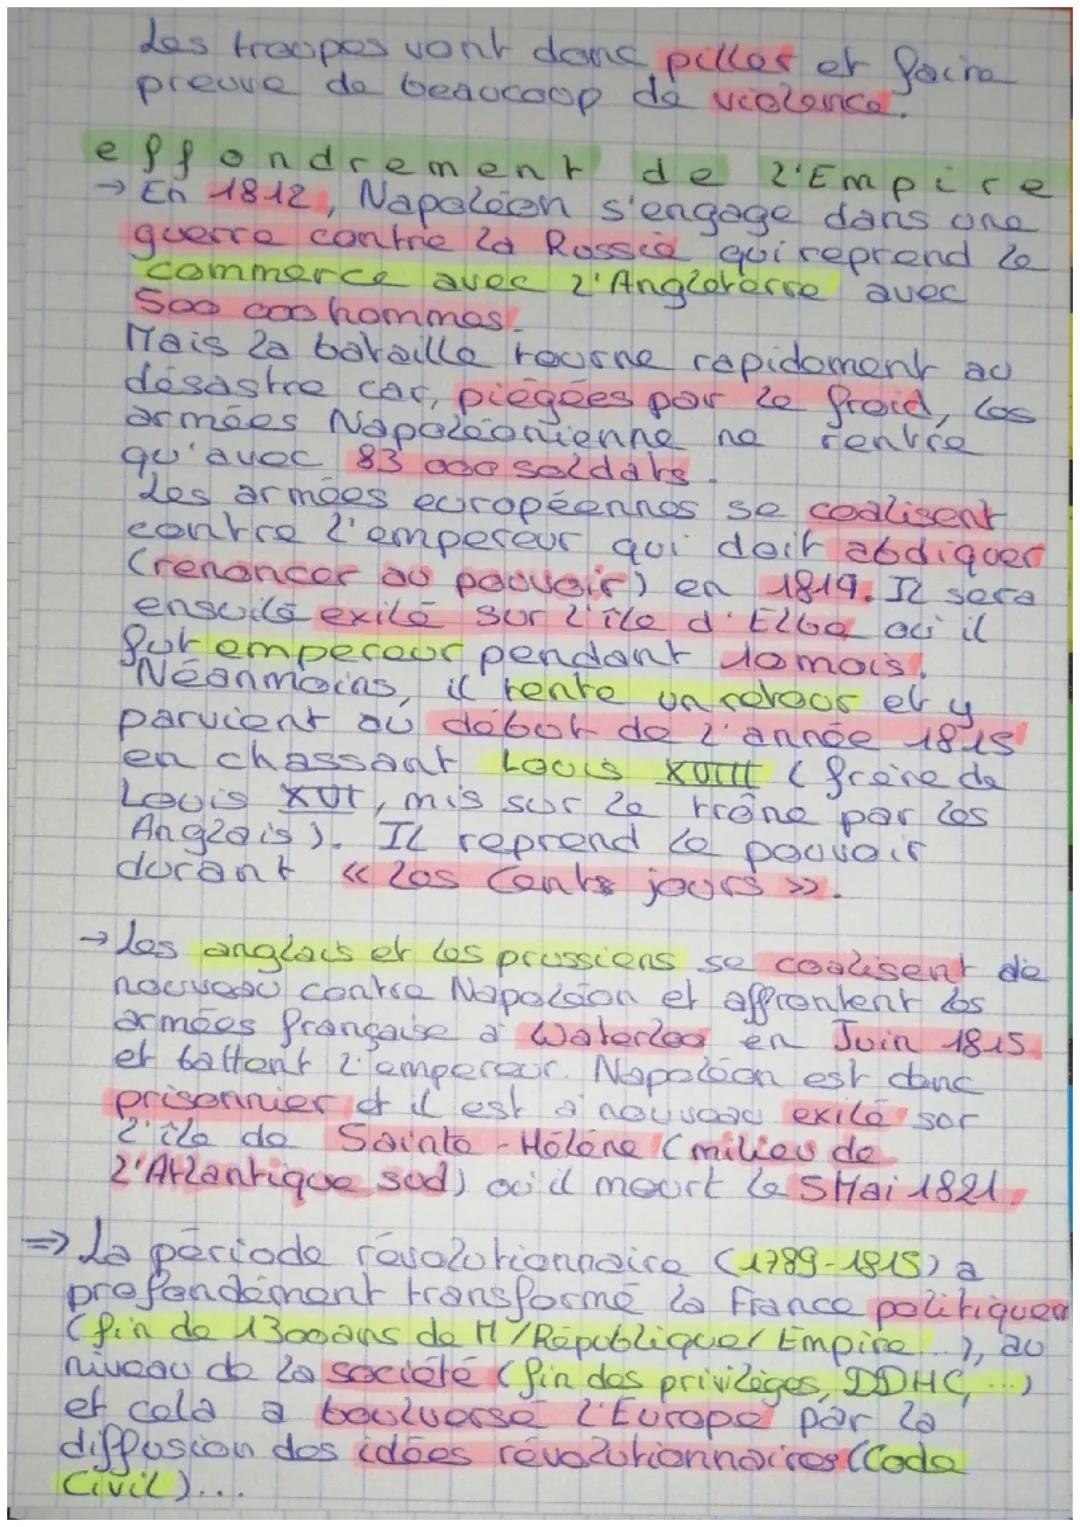 Les troupes vont donc piller et faire
preuve de beaucoup de violence.
effondrement de l'Empire
→ En 1812, Napoléon s'engage dans une
guerre contre la Russie qui reprend le
commerce avec l'Angleterre avec
500 000 hommes.
Mais la bataille tourne rapidement au
désastre car, piégées par le froid, les
armées Napoléonienne ne rentre
qu'avec 83 000 soldats.
Les armées européennes se coalisent
contre l'empereur qui doit abdiquer
(renoncer au pouvoir) en 1814. Il sera
ensuite exilé sur l'île d'Elbe où il
fut empereur pendant 10 mois.
Néanmoins, il tente un retour et y
parvient au début de l'année 1815
en chassant Louis XVIII (frère de
Louis XVI, mis sur le trône par les
Anglais). Il reprend le pouvoir
durant « les Cents jours ».
→ Les anglais et les prussiens se coalisent de
nouveau contre Napoléon et affrontent les
armées française à Waterloo en Juin 1815
et battent l'empereur. Napoléon est donc
prisonnier et il est à nouveau exilé sur
l'île de Sainte-Hélène (milieu de
l'Atlantique sud) où il meurt le 5 Mai 1821.
⇒ La période révolutionnaire (1789-1815) a
profondément transformé la France politiquem
(fin de 1300 ans de M/République/Empire...), au
niveau de la société (fin des privilèges, DDHC, ...)
et cela a boulversé l'Europe par la
diffusion des idées révolutionnaires (Code
Civil)...